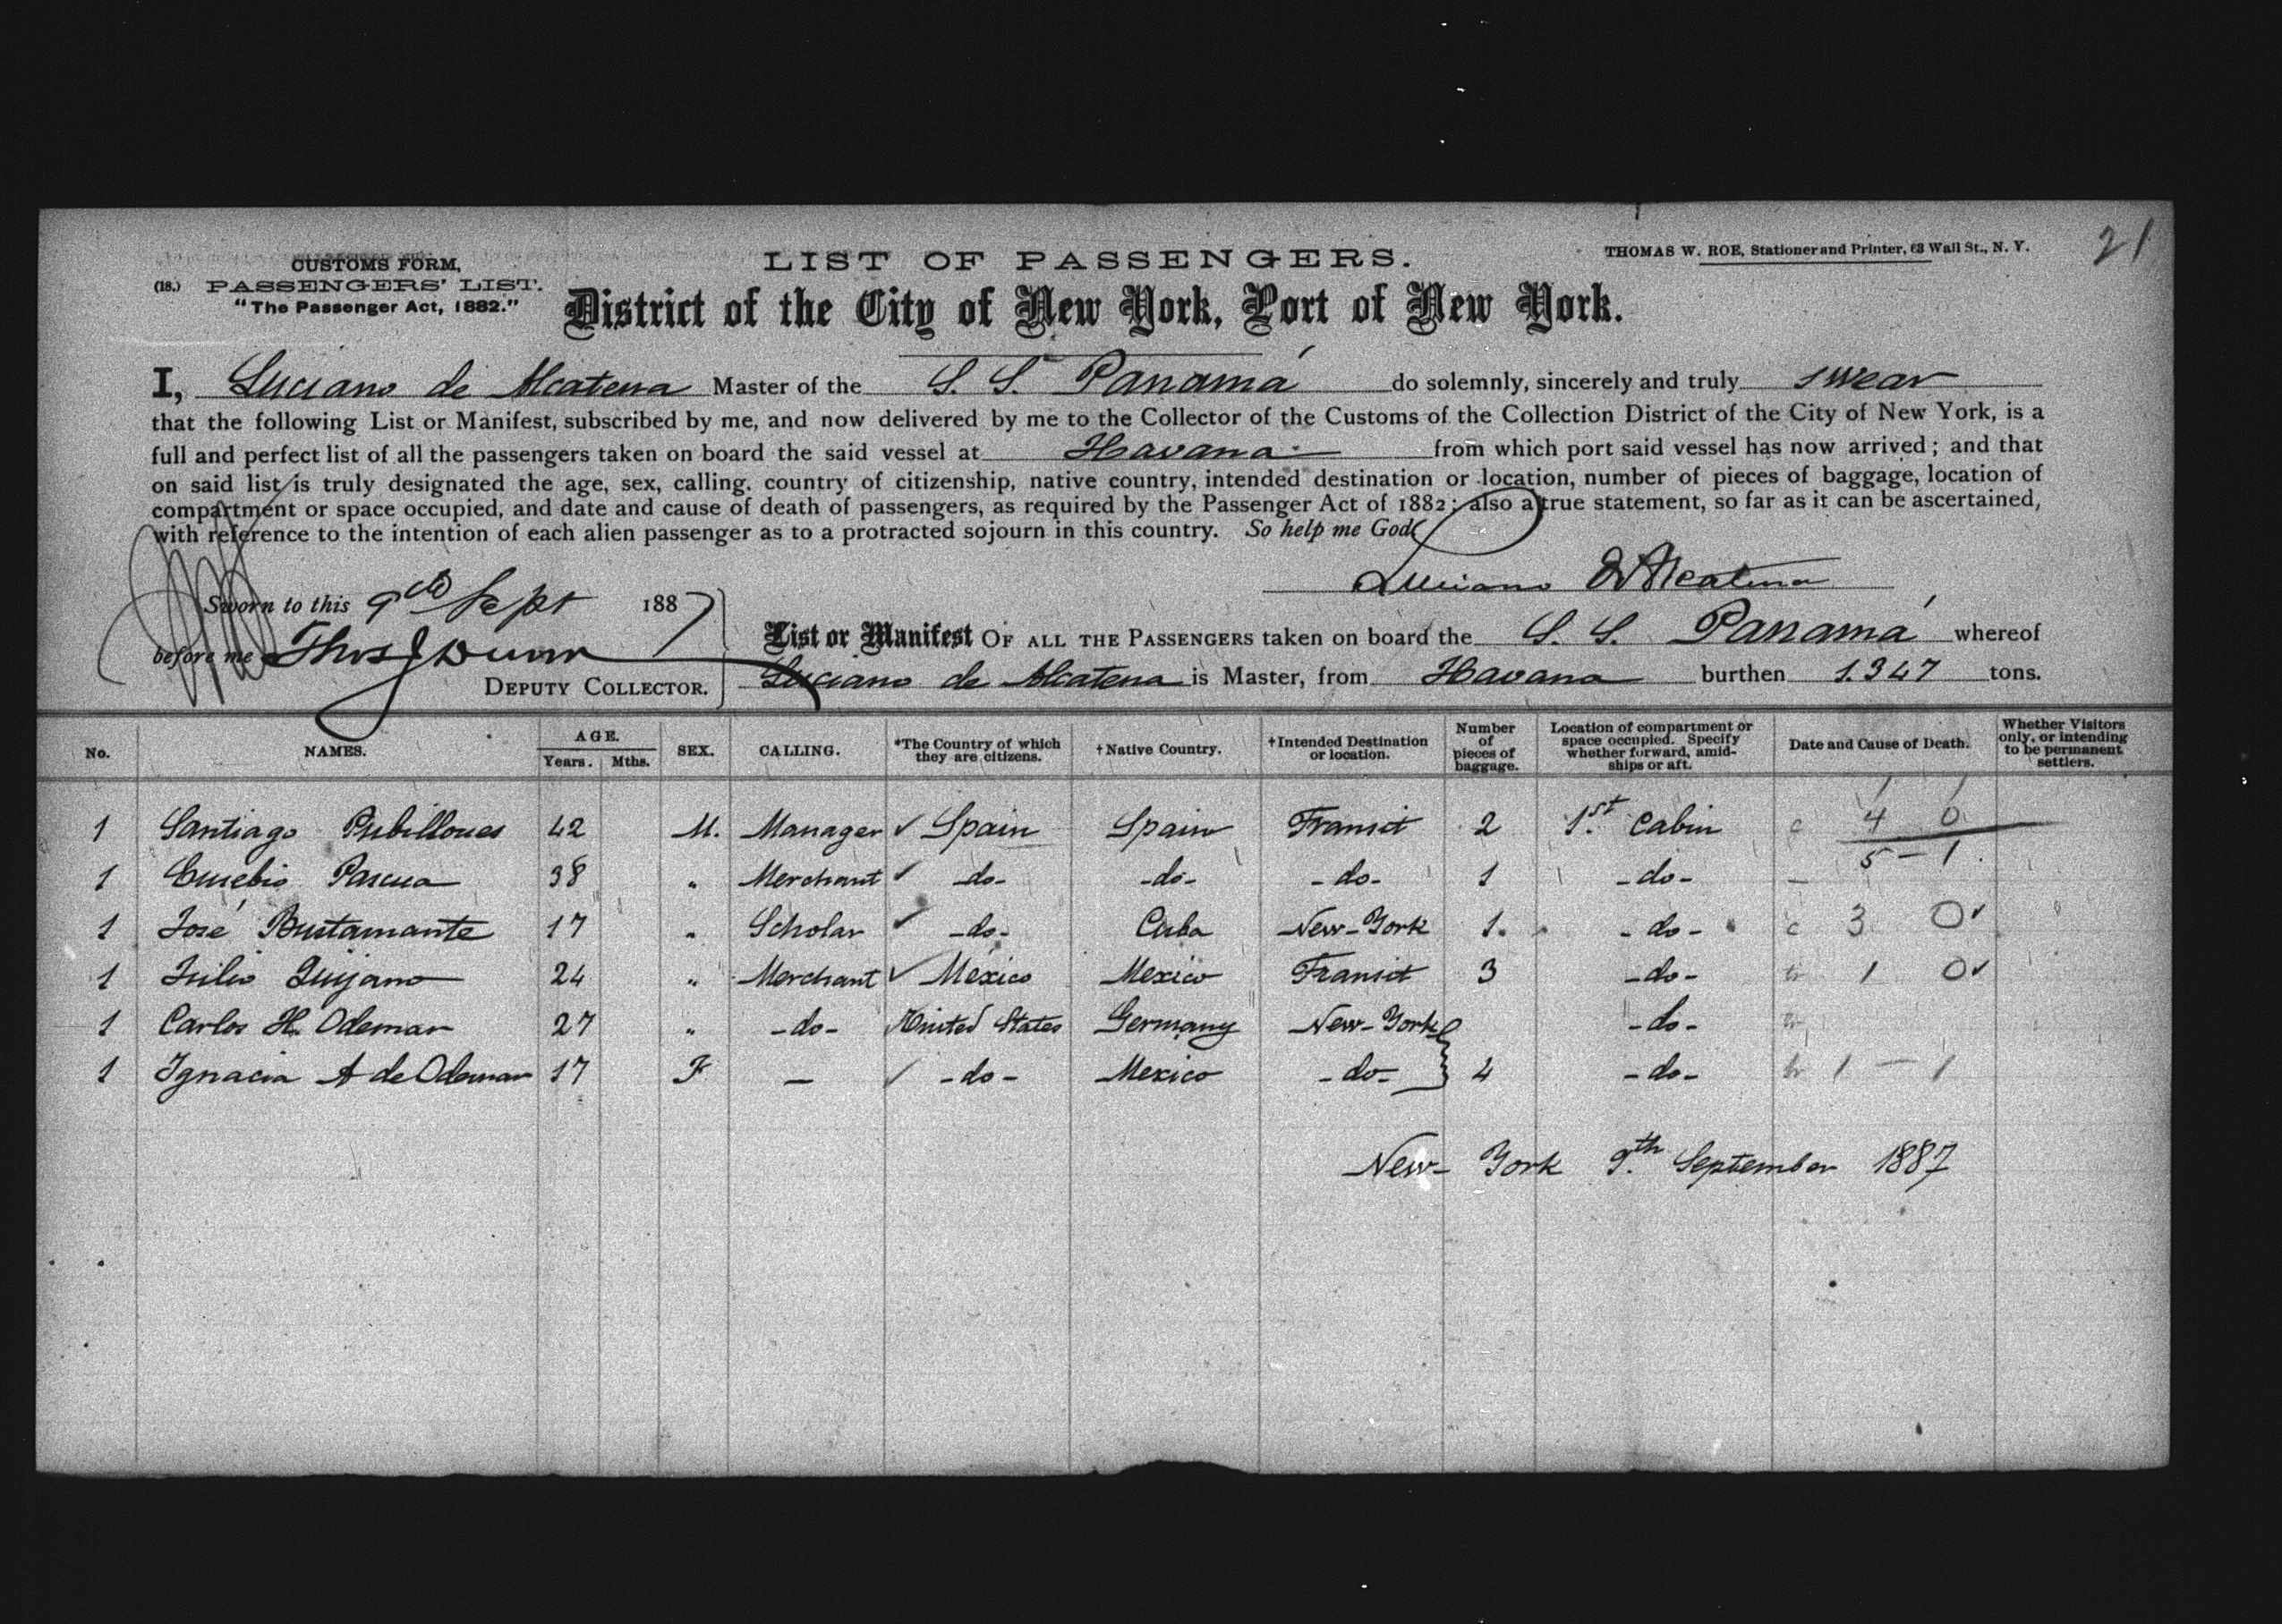 21
LIST OF PASSENGERS.
THOMAS W. ROE, Stationer and Printer, 63 Wall St., N. Y.
CUSTOMS FORM,
(18.) PASSENGERS' LIST.
"The Passenger Act, 1882."
District of the City of New York, Port of New York.
I, Luciano de Alcatena Master of the S. S. Panamá do solemnly, sincerely and truly swear
that the following List or Manifest, subscribed by me, and now delivered by me to the Collector of the Customs of the Collection District of the City of New York, is a
full and perfect list of all the passengers taken on board the said vessel at Havana from which port said vessel has now arrived; and that
on said list is truly designated the age, sex, calling. country of citizenship, native country, intended destination or location, number of pieces of baggage, location of
compartment or space occupied, and date and cause of death of passengers, as required by the Passenger Act of 1882; also a true statement, so far as it can be ascertained,
with reference to the intention of each alien passenger as to a protracted sojourn in this country. So help me God
Luciano D Alcatena
Sworn to this 9th Sept 1887
before me Thos J Dunn
DEPUTY COLLECTOR.
List or Manifest OF ALL THE PASSENGERS taken on board the S. S. Panamá whereof
Luciano de Alcatena is Master, from Havana burthen 1.347 tons.
No. NAMES. AGE. Years. Mths. SEX. CALLING. *The Country of which they are citizens. †Native Country. ‡Intended Destination or location. Number of pieces of baggage. Location of compartment or space occupied. Specify whether forward, amidships or aft. Date and Cause of Death. Whether Visitors only, or intending to be permanent settlers.
1 Santiago Pubillones 42 M. Manager ✓ Spain Spain Transit 2 1st. Cabin c 4 0
5 - 1
1 Eusebio Pascua 38 " Merchant ✓ -do- -do- -do- 1 -do-
1 José Bustamante 17 " Scholar ✓ -do- Cuba New-York 1. -do- c 3 0✓
1 Julio Quijano 24 " Merchant ✓ Mexico Mexico Transit 3 -do- 1 0✓
1 Carlos H. Odemar 27 " -do- United States Germany New-York -do-
1 Ignacia A de Odemar 17 F — ✓ -do- Mexico -do- 4 -do- 1 - 1
New-York 9th. September 1887